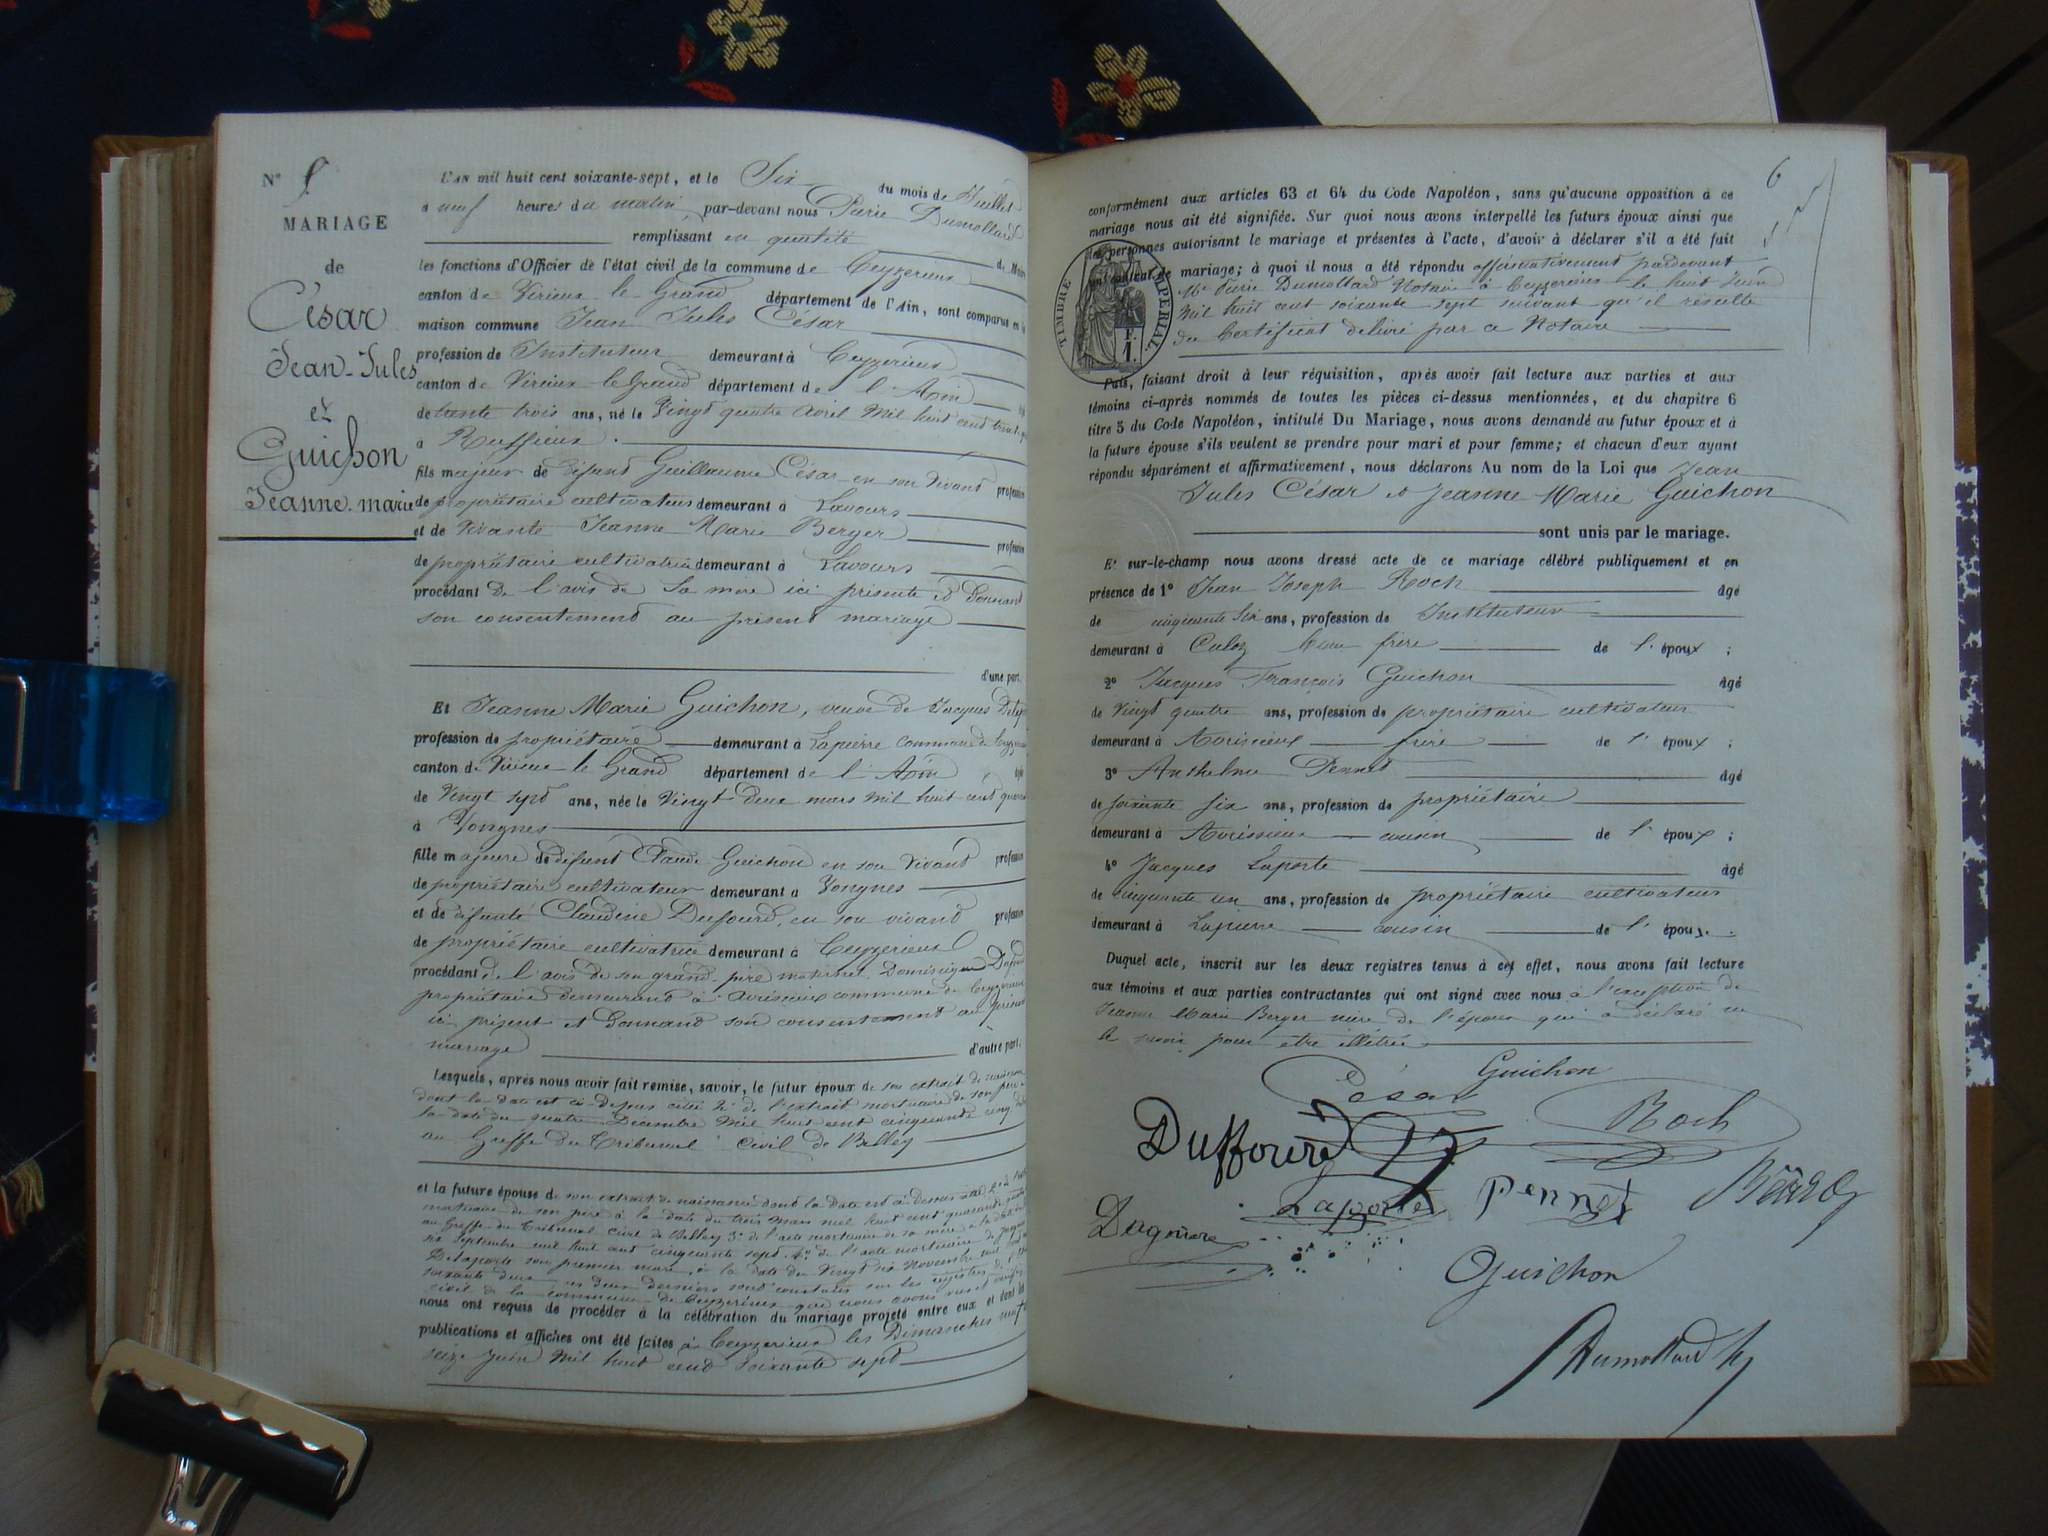 N°
MARIAGE
de
César
Jean-Jules
et
Guichon
Jeanne-marie
L'AN mil huit cent soixante-sept, et le Six du mois de Juillet
à neuf heures du matin, par-devant nous Pierre Dumollard
remplissant en qualité de Maire
les fonctions d'Officier de l'état civil de la commune de Ceyzerieu
canton de Virieu le Grand département de l'Ain, sont comparus en la
maison commune Jean Jules César
profession de Instituteur demeurant à Ceyzerieu
canton de Virieu le Grand département de l'Ain
de trente trois ans, né le Vingt quatre Avril Mil huit cent
à Ruffieux
fils majeur de défunt Guillaume César en son vivant profession
de propriétaire cultivateur demeurant à Lavours
et de vivante Jeanne Marie Berger profession
de propriétaire cultivatrice demeurant à Lavours
procédant de l'avis de Sa mère ici présente et Donnant
son consentement au présent mariage
d'une part.
Et Jeanne Marie Guichon, veuve de Jacques
profession de propriétaire demeurant à Lapierre commune de
canton de Virieu le Grand département de l'Ain
de Vingt sept ans, née le Vingt deux mars Mil huit cent
à Vongnes
fille majeure de défunt Claude Guichon en son vivant profession
de propriétaire cultivateur demeurant à Vongnes
et de défunte Claudine Dufourd, en son vivant profession
de propriétaire cultivatrice demeurant à Ceyzerieu
procédant de l'avis de son grand-père maternel Dominique
propriétaire demeurant à Avrissieu commune de
ici présent et Donnant son consentement au présent
mariage d'autre part.
Lesquels, après nous avoir fait remise, savoir, le futur époux de son extrait de naissance
dont la date est ci-dessus citée 2° de l'extrait mortuaire de son père
la date du quatre Décembre Mil huit cent cinquante cinq
au Greffe du Tribunal Civil de Belley
et la future épouse de son extrait de naissance dont la date est ci-dessus
mortuaire de son père à la date du trois Mars mil huit cent quarante
au Greffe du Tribunal civil de Belley 3° de l'acte mortuaire de sa mère à la date
Septembre mil huit cent cinquante sept 4° de l'acte mortuaire de
Delaporte son premier mari, à la date du Vingt six Novembre mil
soixante deux ces deux derniers sont constatés sur les registres de
civil de la commune de Ceyzerieu que nous avons
nous ont requis de procéder à la célébration du mariage projeté entre eux et dont les
publications et affiches ont été faites à Ceyzerieu les Dimanches neuf
seize Juin Mil huit cent Soixante sept
6
conformément aux articles 63 et 64 du Code Napoléon, sans qu'aucune opposition à ce
mariage nous ait été signifiée. Sur quoi nous avons interpellé les futurs époux ainsi que
les personnes autorisant le mariage et présentes à l'acte, d'avoir à déclarer s'il a été fait
un contrat de mariage; à quoi il nous a été répondu affirmativement pardevant
Me Pierre Dumollard Notaire à Ceyzerieu le huit Juin
Mil huit cent soixante sept suivant qu'il résulte
du Certificat délivré par ce Notaire
TIMBRE IMPERIAL
1 F.
Puis, faisant droit à leur réquisition, après avoir fait lecture aux parties et aux
témoins ci-après nommés de toutes les pièces ci-dessus mentionnées, et du chapitre 6
titre 5 du Code Napoléon, intitulé Du Mariage, nous avons demandé au futur époux et à
la future épouse s'ils veulent se prendre pour mari et pour femme; et chacun d'eux ayant
répondu séparément et affirmativement, nous déclarons Au nom de la Loi que Jean
Jules César et Jeanne Marie Guichon
sont unis par le mariage.
Et sur-le-champ nous avons dressé acte de ce mariage célébré publiquement et en
présence de 1° Jean Joseph Roch âgé
de cinquante six ans, profession de Instituteur
demeurant à Culoz beau frère de l'époux ;
2° Jacques François Guichon âgé
de Vingt quatre ans, profession de propriétaire cultivateur
demeurant à Avrissieu frère de l'épouse ;
3° Anthelme Pennet âgé
de soixante six ans, profession de propriétaire
demeurant à Avrissieu cousin de l'épouse ;
4° Jacques Laporte âgé
de cinquante un ans, profession de propriétaire cultivateur
demeurant à Lapierre cousin de l'épouse.
Duquel acte, inscrit sur les deux registres tenus à cet effet, nous avons fait lecture
aux témoins et aux parties contractantes qui ont signé avec nous à l'exception de
Jeanne Marie Berger mère de l'époux qui a déclaré ne
le savoir pour être illétrée
Guichon
César
Roch
Duffourd
Laporte
Pennet
Guichon
Dumollard